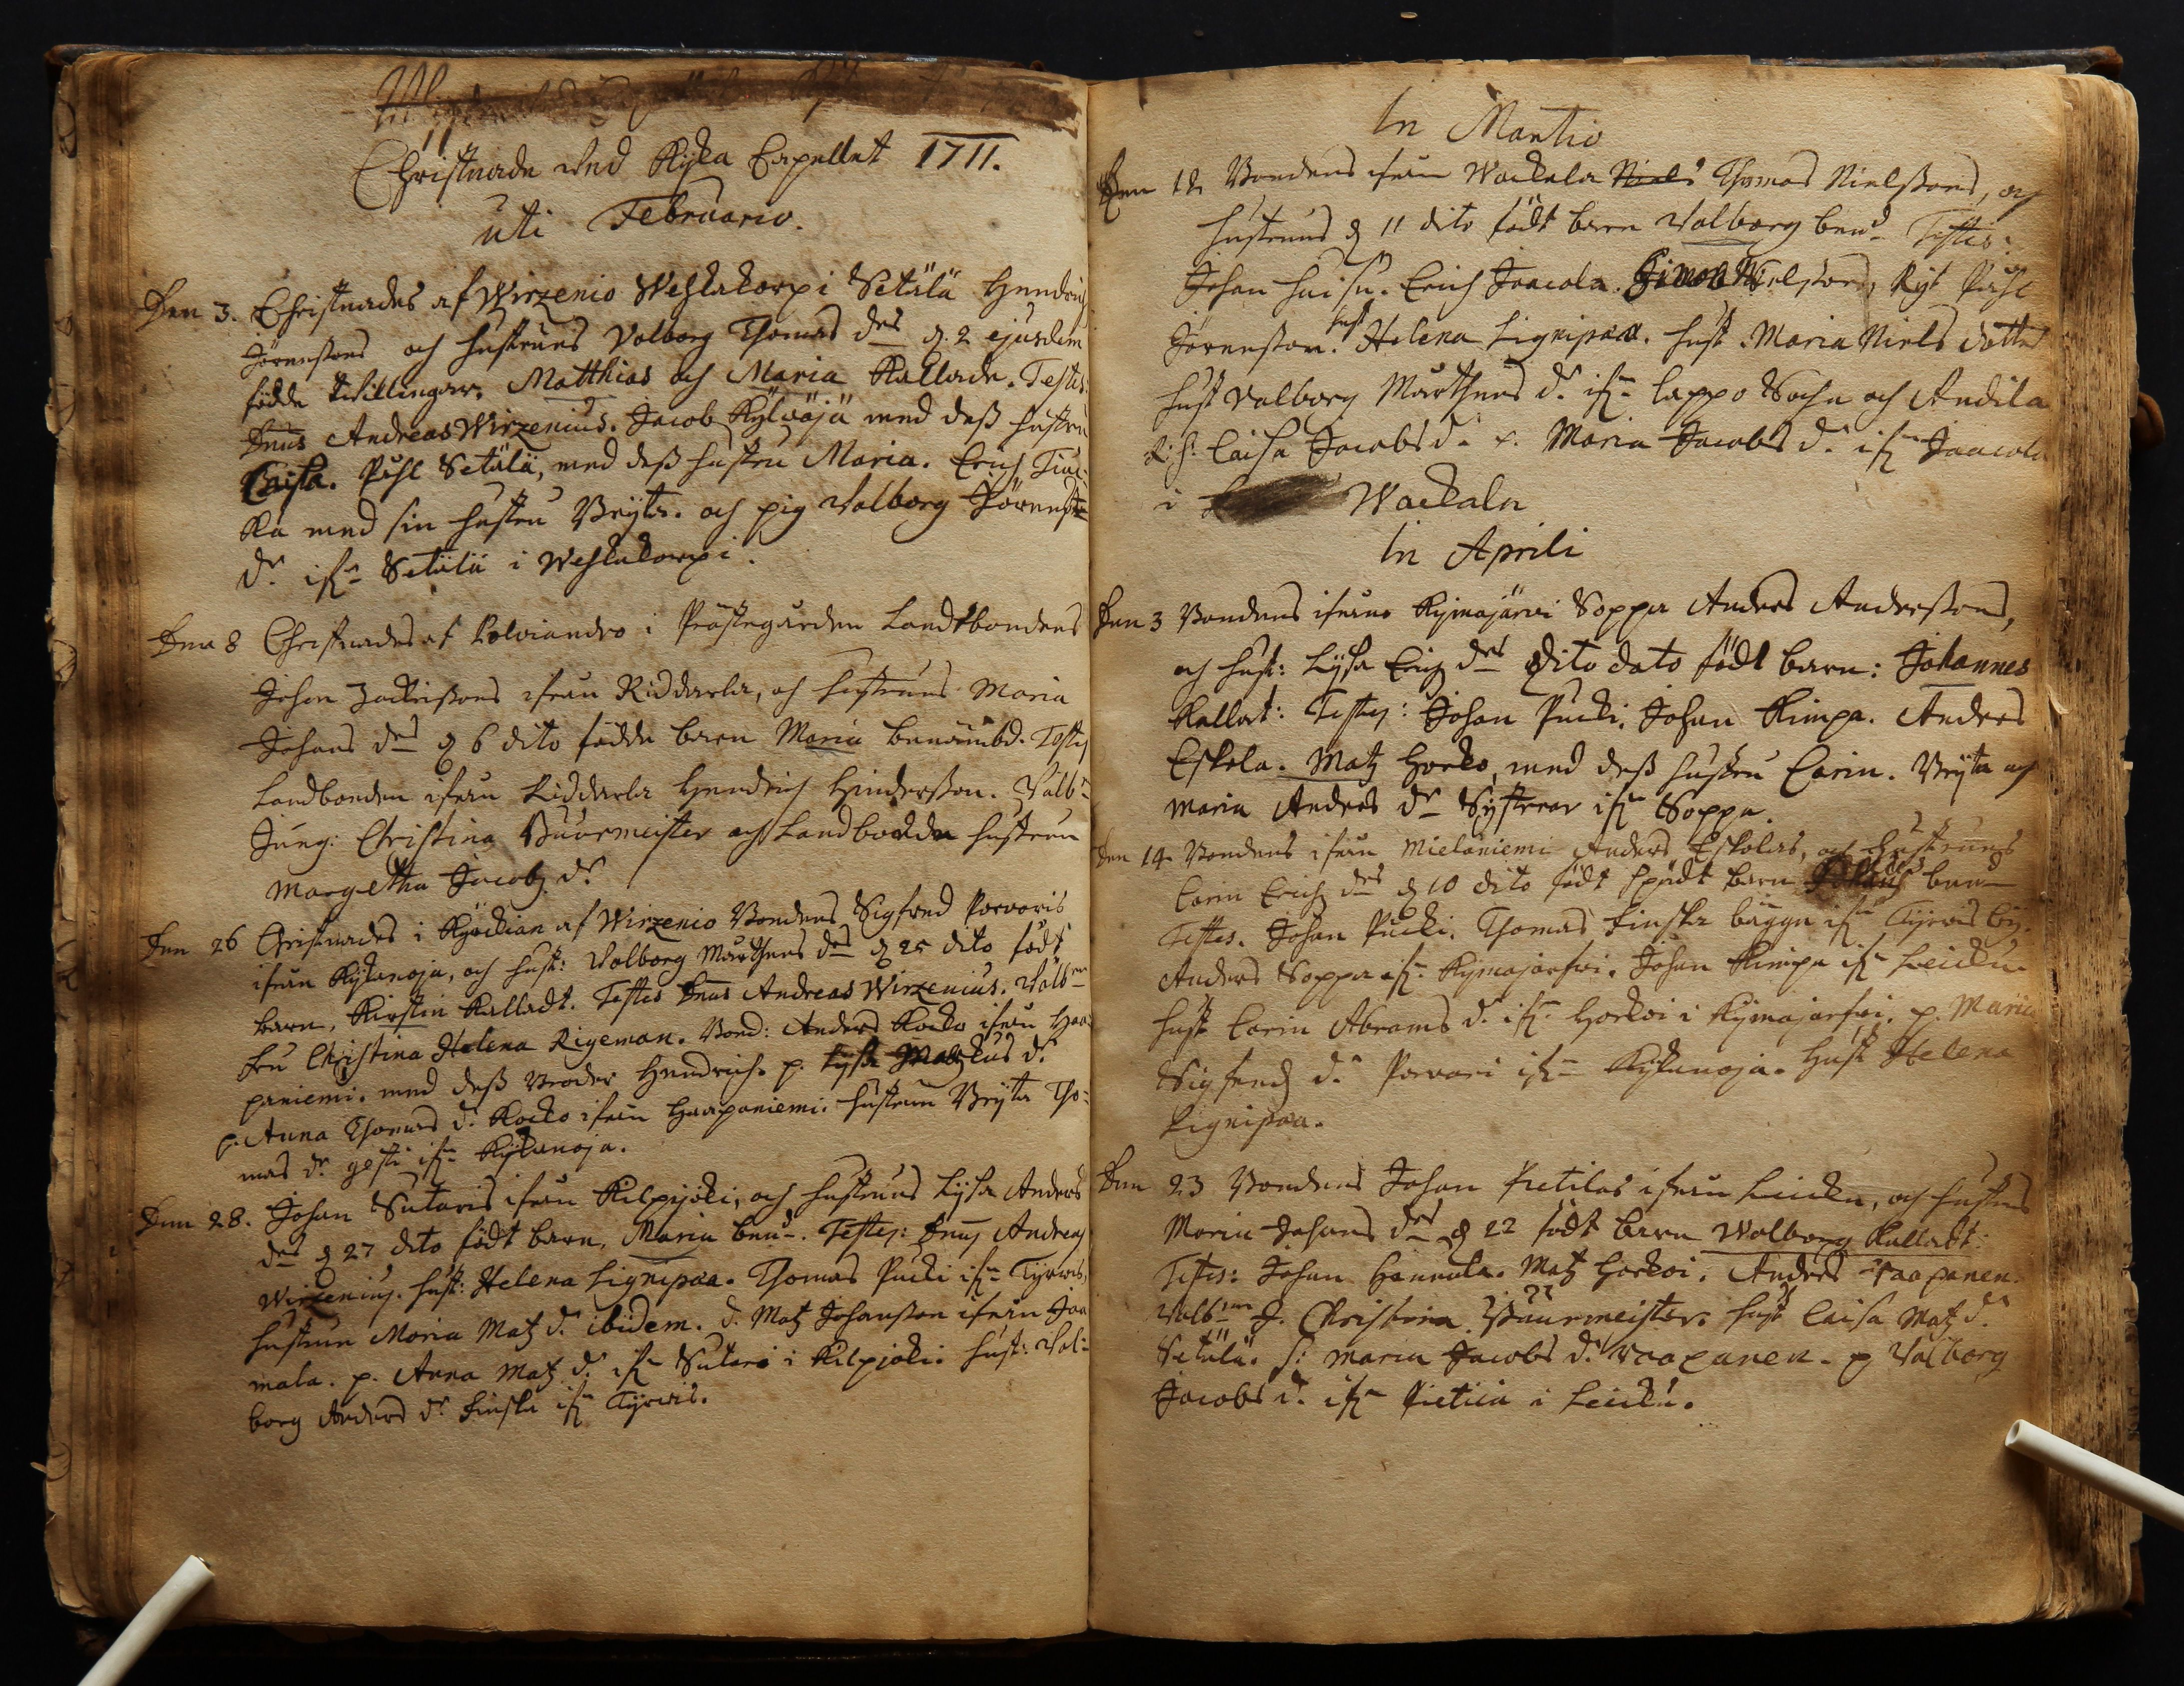 Christnade wed Kyka Capellet 1711.
uti Februario.
Den 3. Christnades af Wirzenio Weslakorpi Setälä Hendrich
Jörenssons och hustruns Valborg Thomas dr d. 2 ejusdem
födde twillingar, Matthias och Maria Kallade. Testes:
Dnus Andreas Wirzenius. Jacob Kylväjä med dess hustru
Caisa. Påhl Setälä, med dess hustru Maria. Erich
Ka med sin hustru Bryta. och pig Valborg Jörens
dr. ifrn Setälä i Weslakorpi.
Den 8 Christnades af Polviandro i Prästegården Landbondens
Johan Zachrissons ifrån Riddarla, och hustruns Maria
Johans dr d 6 dito födde barn Maria benämbd. Testes
Landbonden ifrån Riddarla Hendrich Hinderson. Wälb.
Jung: Christina Buurmeister och Landbondens hustrun
Margetha Jacobz dr
Den 26 Christnades i Kyrckian af Wirzenio Bondens Sigfred Porvaris
ifrån Kykanoja, och hust: Valborg Mårthens dr d 25 dito födt
barn, Kirstin Kalladt. Testes Dnus Andreas Wirzenius. Wälb
fru Christina Helena Rigeman. Bond: Anders Kocko ifrån Haa
paniemi. med dess Broder Hendrich. p. Lysa Matzkus dr
p. Anna Thomas dr. Kocko ifrån Haapaniemi. hustrun Bryta Tho=
mas dr gesti ifrn Kykanoja.
Den 28. Johan Sutaris ifrån Kilpijoki, och hustruns Lysa Anders
dr d 27 dito födt barn, Maria ben. Testes: Dnus Andreas
Wirzenius. hust: Helena Lignipaa. Thomas Pucki ifrn Tyrwis,
hustrun Maria Matz dr. ibidem. d. Matz Johansson ifrån Jaa
mala. p. Anna Matz dr ifrn Sutari i Kilpjoki. hust: Val=
borg Anders dr Linska ifrn Tyrvis.
In Martio
Den 12 Bondens ifrån Wackala Niels Thomas Nielssons, och
hustruns d 11 dito födt barn Valborg ben. Testes:
Johan . Erich Jaacola. Simon Nielsson, Ryt Påhl
Jörensson. hust Helena Lignipaa. hust. Maria Niels dotter
hust Valborg Mårthens dr. ifrn Lappo och Andila
Caisa Jacobs dr. p. Maria Jacobs dr. ifrn Jaacola
i Wackala
In Aprili
Den 3 Bondens ifrån Kymajärvi Soppa Anders Anderssons,
och hust: Lysa Erich dr dito dato födt barn: Johannes
Kallat: Testes: Johan Pucki. Johan Kimpa. Anders
Eskola. Matz Horko, med dess hustru Carin. Bryta och
Maria Anders dr Systrar ifrn Soppa.
Den 14. Bondens ifrån Mielaniemi Anders Eskolas, och hustruns
Carin Erich dr d 10 dito födt barn ben
Testes. Johan Pucki. Thomas Linska bägge ifrn Tyrvis by.
Anders Soppa ifrn Kymajarfwi. Johan Kimpa ifrn Leicku
hust Carin Abrams dr. ifrn Horkoi i Kymajarfwi. p. Maria
Sigfreds dr. Porvari ifrn Kykanoja. hust Helena
Lignipaa.
Den 23 Bondens Johan Pietilas ifrån Leicku, och hustruns
Maria Johans dr d 22 födt barn Walborg Kalladt:
Testes: Johan Hannula. Matz Horkoi. Anders Paapanen.
Wälb J. Christina Buurmeister. hust Caisa Matz dr.
Setälä. h: Maria Jacobs dr. Paapanen. p Valborg
Jacobs dr. ifrn Pietila i Leicku.